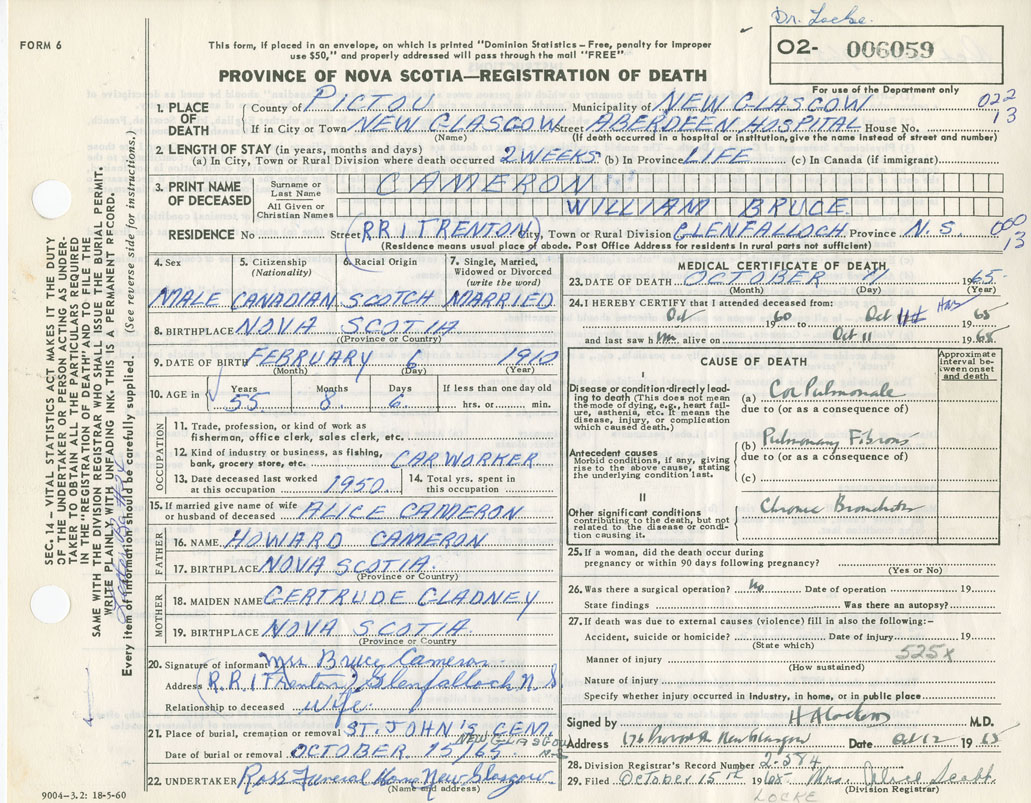 Dr. Locke.
FORM 6
This form, if placed in an envelope, on which is printed "Dominion Statistics—Free, penalty for improper
use $50," and properly addressed will pass through the mail "FREE"
02- 006059
PROVINCE OF NOVA SCOTIA—REGISTRATION OF DEATH
For use of the Department only
1. PLACE OF DEATH
County of PICTOU Municipality of NEW GLASGOW 022
If in City or Town NEW GLASGOW Street ABERDEEN HOSPITAL House No. 13
(Name) (If death occurred in a hospital or institution, give the name instead of street and number)
2. LENGTH OF STAY (in years, months and days)
(a) In City, Town or Rural Division where death occurred 2 WEEKS (b) In Province LIFE (c) In Canada (if immigrant)
3. PRINT NAME OF DECEASED
Surname or Last Name CAMERON
All Given or Christian Names WILLIAM BRUCE
RESIDENCE No Street RR1 TRENTON City, Town or Rural Division GLENFALLOCH Province N.S. 13
(Residence means usual place of abode. Post Office Address for residents in rural parts not sufficient)
4. Sex MALE
5. Citizenship (Nationality) CANADIAN
6. Racial Origin SCOTCH
7. Single, Married, Widowed or Divorced (write the word) MARRIED
8. BIRTHPLACE NOVA SCOTIA
(Province or Country)
9. DATE OF BIRTH FEBRUARY 6 1910
(Month) (Day) (Year)
10. AGE in Years 55 Months 8 Days 6 If less than one day old hrs. or min.
OCCUPATION
11. Trade, profession, or kind of work as fisherman, office clerk, sales clerk, etc.
12. Kind of industry or business, as fishing, bank, grocery store, etc. CAR WORKER
13. Date deceased last worked at this occupation 1950
14. Total yrs. spent in this occupation
15. If married give name of wife or husband of deceased ALICE CAMERON
FATHER
16. NAME HOWARD CAMERON
17. BIRTHPLACE NOVA SCOTIA.
(Province or Country)
MOTHER
18. MAIDEN NAME GERTRUDE GLADNEY
19. BIRTHPLACE NOVA SCOTIA.
(Province or Country)
20. Signature of informant Mrs Bruce Cameron
Address R.R.1 Trenton Glenfalloch N S
Relationship to deceased wife.
21. Place of burial, cremation or removal ST. JOHN'S CEM.
NEW GLASGOW
Date of burial or removal OCTOBER 15/65
22. UNDERTAKER Ross Funeral Home New Glasgow
(Name and address)
9004-3.2: 18-5-60
MEDICAL CERTIFICATE OF DEATH
23. DATE OF DEATH OCTOBER 1965
(Month) (Day) (Year)
24. I HEREBY CERTIFY that I attended deceased from:
Oct 1960 to Oct 11 1965
and last saw him alive on Oct 11 1965
CAUSE OF DEATH
Approximate interval between onset and death
I
Disease or condition directly leading to death (This does not mean the mode of dying, e.g., heart failure, asthenia, etc. It means the disease, injury, or complication which caused death.)
(a) Cor Pulmonale
due to (or as a consequence of)
Antecedent causes
Morbid conditions, if any, giving rise to the above cause, stating the underlying condition last.
(b) Pulmonary Fibrosis
due to (or as a consequence of)
(c)
II
Other significant conditions contributing to the death, but not related to the disease or condition causing it.
Chronic Bronchitis
25. If a woman, did the death occur during pregnancy or within 90 days following pregnancy?
(Yes or No)
26. Was there a surgical operation? No Date of operation 19
State findings Was there an autopsy?
27. If death was due to external causes (violence) fill in also the following:-
Accident, suicide or homicide? Date of injury 19
(State which)
Manner of injury 525x
(How sustained)
Nature of injury
Specify whether injury occurred in industry, in home, or in public place
Signed by M.D.
Address New Glasgow Date Oct 12 1965
28. Division Registrar's Record Number 2-584
29. Filed October 15th 1965 Mrs.
(Division Registrar)
LOCKE
SEC. 14 — VITAL STATISTICS ACT MAKES IT THE DUTY
OF THE UNDERTAKER OR PERSON ACTING AS UNDER-
TAKER TO OBTAIN ALL THE PARTICULARS REQUIRED
IN THE "REGISTRATION OF DEATH" AND TO FILE THE
SAME WITH THE DIVISION REGISTRAR WHO SHALL ISSUE THE BURIAL PERMIT.
WRITE PLAINLY, WITH UNFADING INK. THIS IS A PERMANENT RECORD.
Every item of information should be carefully supplied. (See reverse side for instructions.)